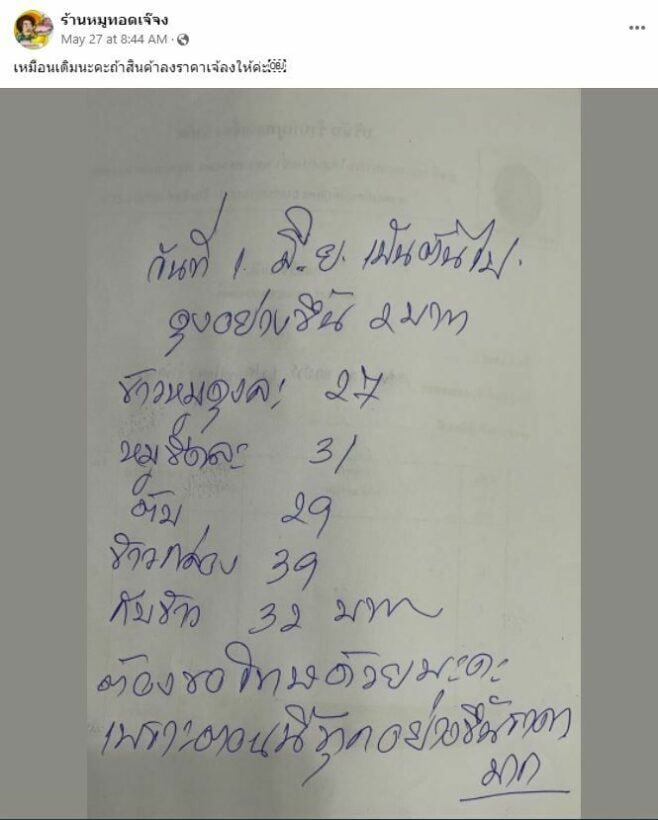 ร้านหมูทอดเจ๊จง
May 27 at 8:44 AM
เหมือนเดิมนะคะถ้าสินค้าลงราคาเจ้ลงให้ค่ะ
วันที่ 1. มิ.ย. เป็นต้นไป.
ถุงอย่างขึ้น 2 บาท
ข้าวหมูถุงละ 27
หมูขีดละ 31
ตับ 29
ข้าวกล่อง 39
กับข้าว 32 บาท
ต้องขอโทษด้วยนะคะ
เพราะตอนนี้ทุกอย่างขึ้นราคา
มาก